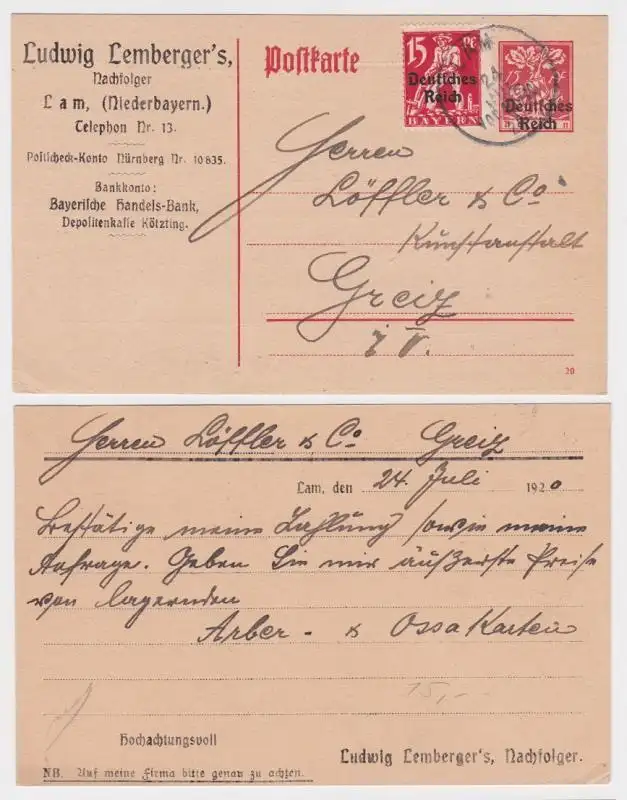 Ludwig Lemberger's,
Nachfolger
Lam, (Niederbayern.)
Telephon Nr. 13.
Postscheck-Konto Nürnberg Nr. 10835.
Bankkonto:
Bayerische Handels-Bank,
Depositenkasse Kötzting.
Postkarte
15 Pf
Deutsches
Reich
BAYERN
LAM
24
Deutsches
Reich
Herren
Löffler & Co
Kunstanstalt
Greiz
i V.
20
Herren Löffler & Co Greiz
Lam, den 24. Juli 1920
Bestätige meine Zahlung sowie meine
Anfrage. Geben Sie mir äußerste Preise
von lagernden
Arber- & Ossakarten
15,-
Hochachtungsvoll
Ludwig Lemberger's, Nachfolger.
NB. Auf meine Firma bitte genau zu achten.